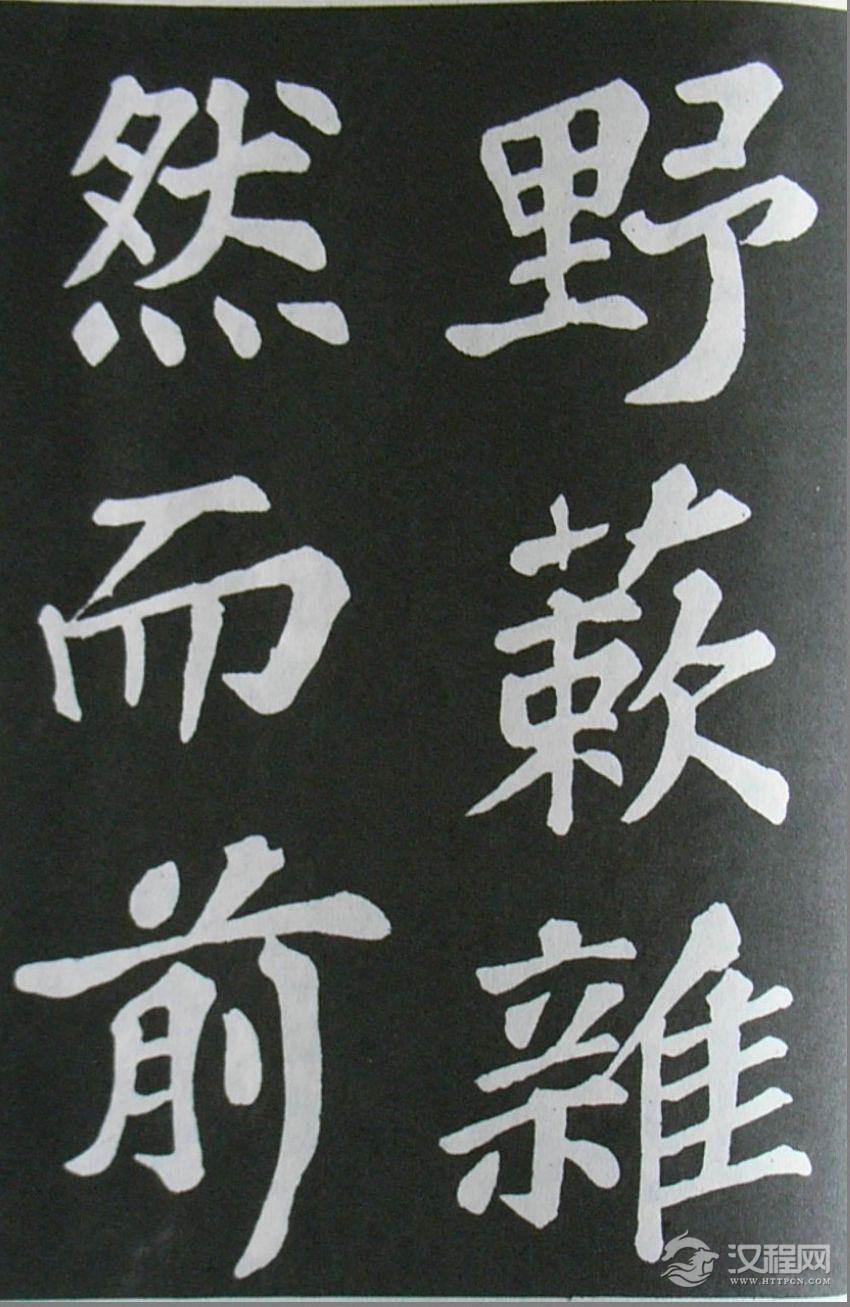 野蔌雜
然而前
汉程网
WWW.HTTPCN.COM